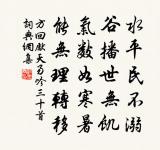 水平民不溺
谷播世無飢
氣數如寒暑
能無理轉移
方回先天易吟三十首
詞典網集